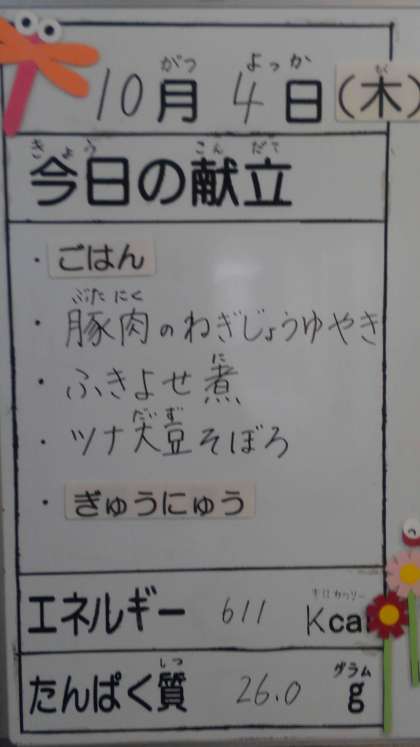 がつ よっか もく
10月 4日(木)
きょう こんだて
今日の献立
・ごはん
ぶたにく
・豚肉のねぎじょうゆやき
に
・ふきよせ煮
だいず
・ツナ大豆そぼろ
・ぎゅうにゅう
キロカロリー
エネルギー 611 Kcal
しつ グラム
たんぱく質 26.0 g